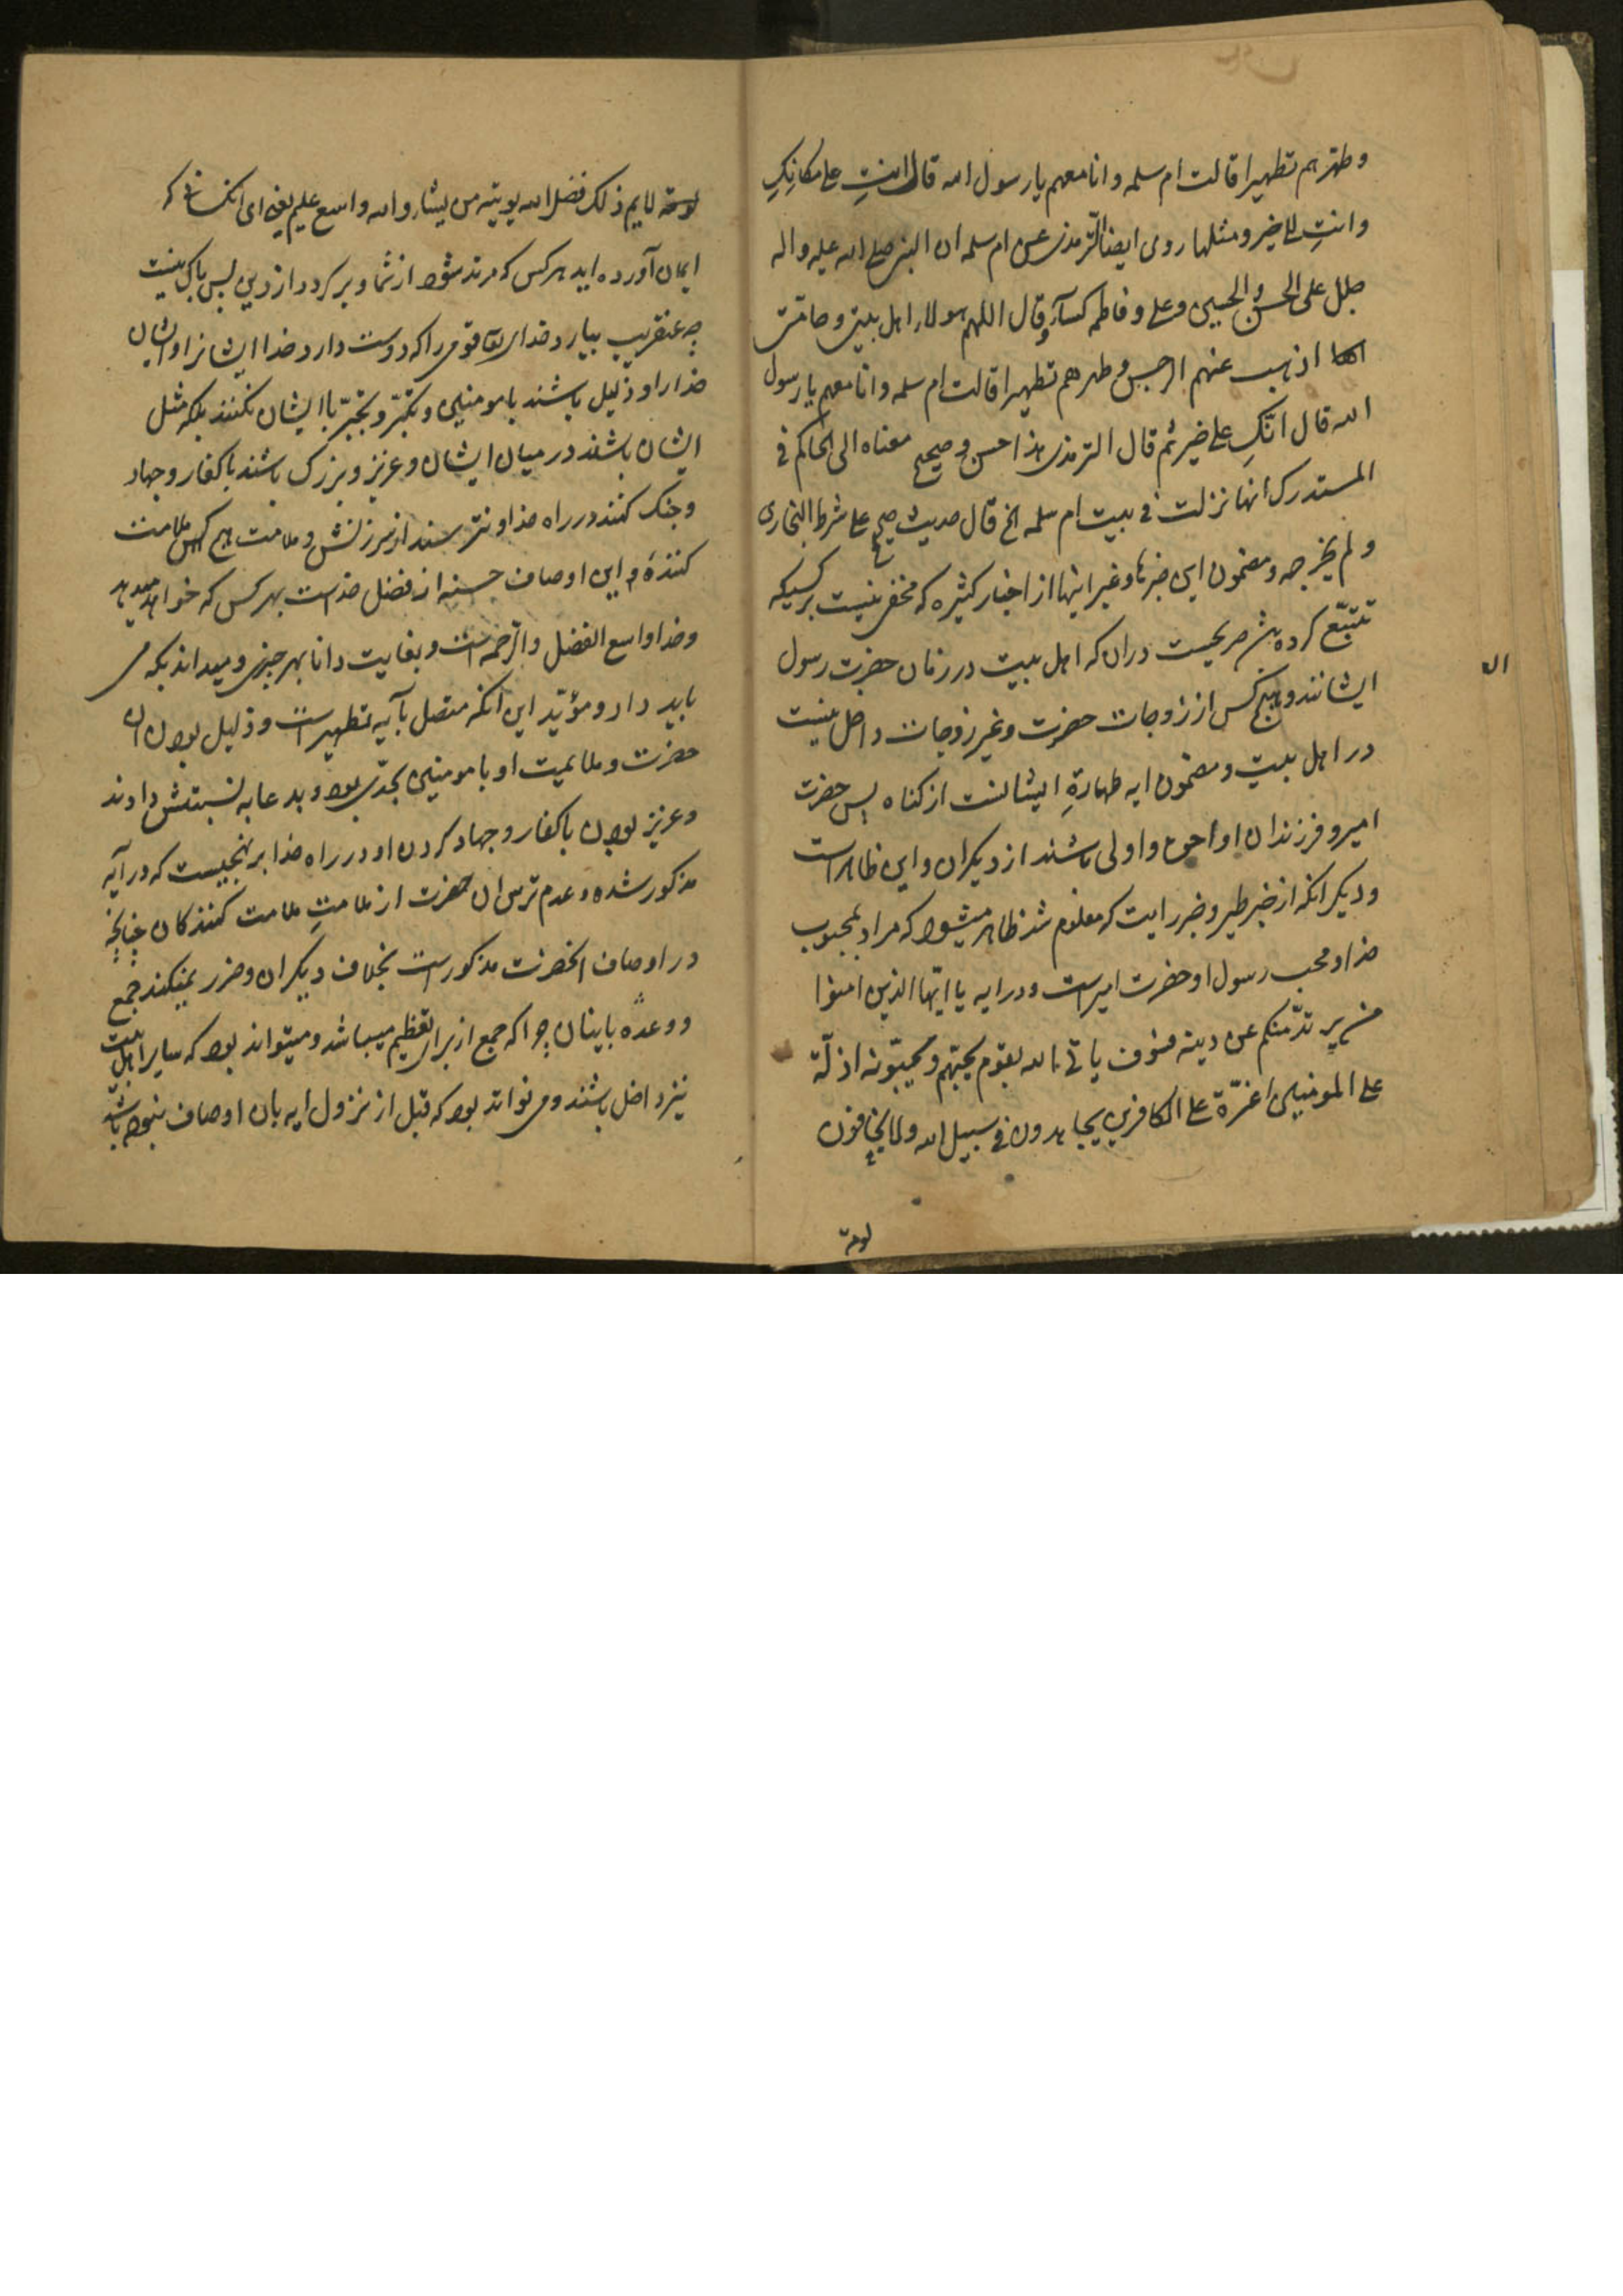 وطهرهم تطهیرا قالت ام سلمه وانا معهم یا رسول الله قال انتِ علی مکانکِ
وانتِ الی خیر ومثلها روی ایضا الترمذی عن ام سلمه ان النبی صلی الله علیه واله
جلل علی الحسن والحسین وعلی وفاطمه کسآء وقال اللهم هولاء اهل بیتی وحامتی
اذهب عنهم الرجس وطهرهم تطهیرا قالت ام سلمه وانا معهم یا رسول
الله قال انکِ علی خیر ثم قال الترمذی هذا حسن وصحیح معناه الی الحاکم فی
المستدرک انها نزلت فی بیت ام سلمه الخ قال حدیث صحیح علی شرط البخاری
ولم یخرجه ومضمون این خبرها وغیر اینها از اخبار کثیره که مخفی نیست بر کسیکه
تتبّع کرده باشد صریحست دران که اهل بیت در زمان حضرت رسول
ایشانند وهیچ کس از زوجات حضرت وغیر زوجات داخل نیست
در اهل بیت ومضمون ایه طهارةِ ایشانست از کناه پس حضرت
امیر وفرزندان او احق واولی باشند از دیکران واین ظاهر است
ودیکر انکه از خبر طیر وخبر رایت که معلوم شد ظاهر میشود که مراد بمحبوب
خدا ومحب رسول او حضرت امیر است ودر ایه یا ایها الذین امنوا
من یرتدّ منکم عن دینه فسوف یاتی الله بقوم یحبّهم ویحبّونه اذلّة
علی المومنین اعزّة علی الکافرین یجاهدون فی سبیل الله ولا یخافون
لومة
لومة لایم ذلک فضل الله یوتیه من یشاء والله واسع علیم یعنی ای انکسانی که
ایمان آورده اید هر کس که مرتد شود از شما وبر کردد از دین پس باکی نیست
چه عنقریب بیارد خدای تعا قومی را که دوست دارد خدا ایشانرا وایشان
خدا را وذلیل باشند با مومنین وتکبّر وتجبّر با ایشان نکنند بلکه مثل
ایشان باشند در میان ایشان وعزیز وبزرک باشند با کفار وجهاد
وجنک کنند در راه خدا ونترسند از سرزنش وملامت هیچ ملامت
کنندهٔ واین اوصاف حسنه از فضل خداست بهر کس که خواهد میدهد
وخدا واسع الفضل والرحمه است وبغایت دانا بهر چیزی ومیداند بکه می
باید داد ومؤیّد این انکه متصل بآیه تطهیر است وذلیل بودن ان
حضرت وملایمیت او با مومنین بحدّی بود که بدعابه نسبتش دادند
وعزیز بودن با کفار وجهاد کردن او در راه خدا بر نهجیست که در آیه
مذکور شده وعدم ترس ان حضرت از ملامتِ ملامت کنندکان چنانچه
در اوصاف انحضرت مذکور است بخلاف دیکران وضرر نمیکند جمع
ووعده باینان چرا که جمع از برای تعظیم میباشد ومیتواند بود که سایر اهل بیت
نیز داخل باشند ومی تواند بود که قبل از نزول ایه بان اوصاف نبوده باشند